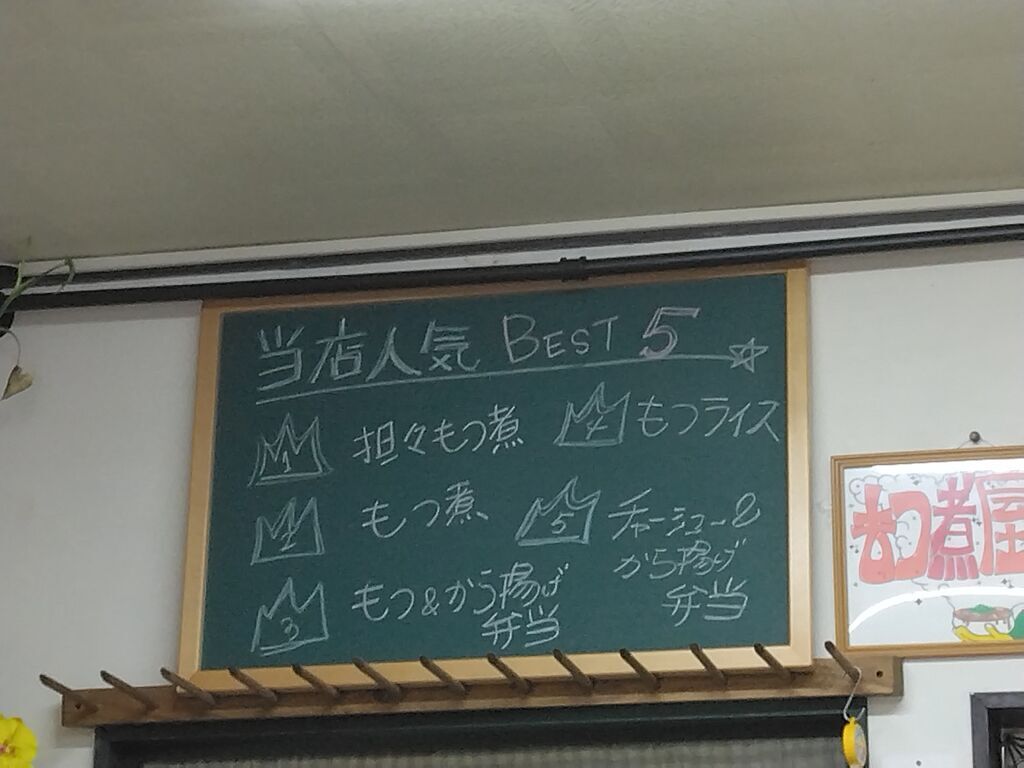 当店人気 BEST 5
1 担々もつ煮
2 もつ煮
3 もつ&から揚げ
弁当
4 もつライス
5 チャーシュー&
から揚げ
弁当
もつ煮屋